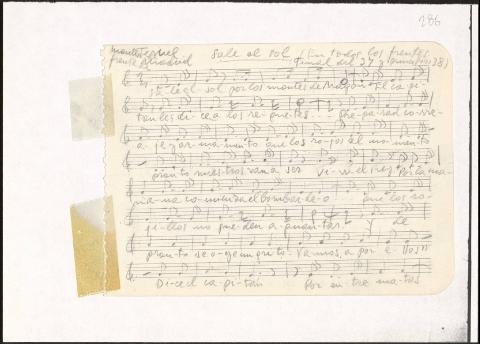 286
montes del
frente Madrid
Sale el sol (En todos los frentes
final del 37 y 38)
Sale el sol por los montes de Aragón El capi-
tan les dice a los requetés ... Preparad corre-
a-je y ar-ma-men-to que los ro-jos al momento
pronto nuestros van a ser Viva el rey Por la ma-
ña-na comienza el bombar-de-o que los ro-
ji-llos no pue-den a-guan-tar. y de
pron-to se o-ye un gri-to. Va-mos, a por e-llos
Dice el ca-pi-tán Por en-tre ma-tas